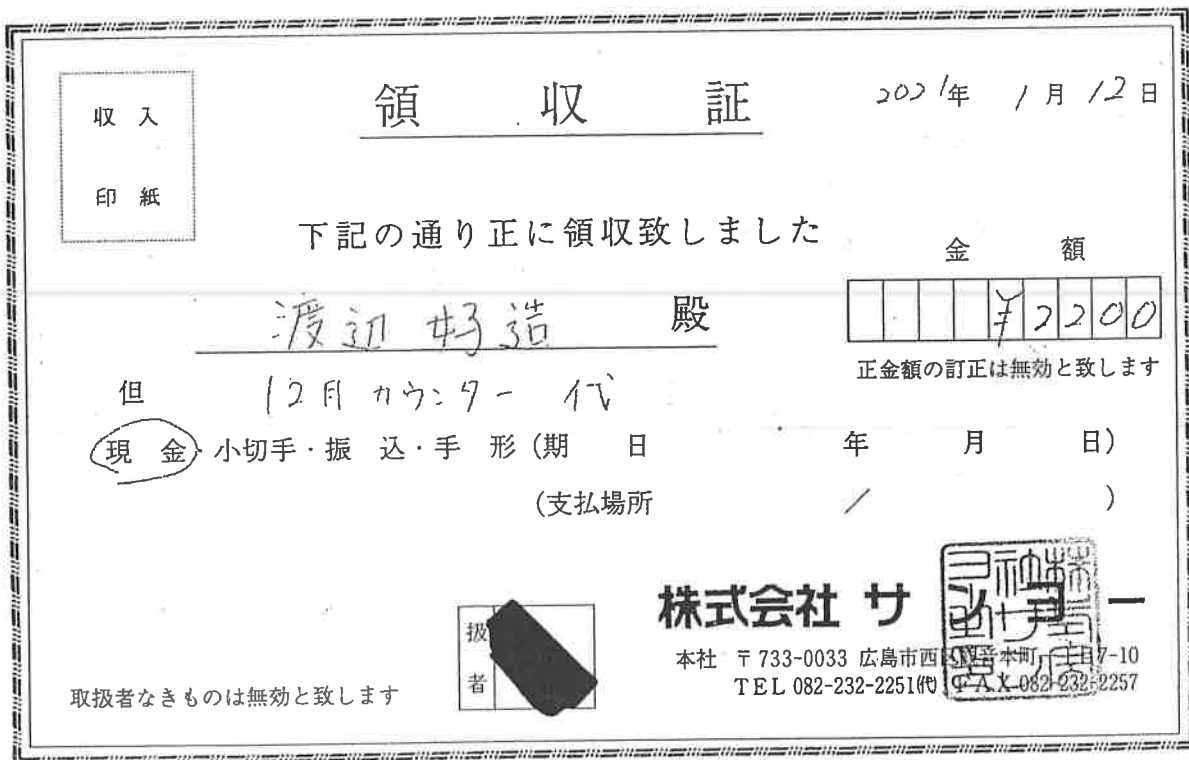 収入
印紙
領収証
2021年 1月 12日
下記の通り正に領収致しました
金額
渡辺 好造 殿
¥2200
正金額の訂正は無効と致します
但 12月カウンター代
現金・小切手・振込・手形(期日 年 月 日)
(支払場所 / )
株式会社 サンヨー
扱者
本社 〒733-0033 広島市西区観音本町一丁目7-10
TEL 082-232-2251(代) FAX 082-232-2257
取扱者なきものは無効と致します